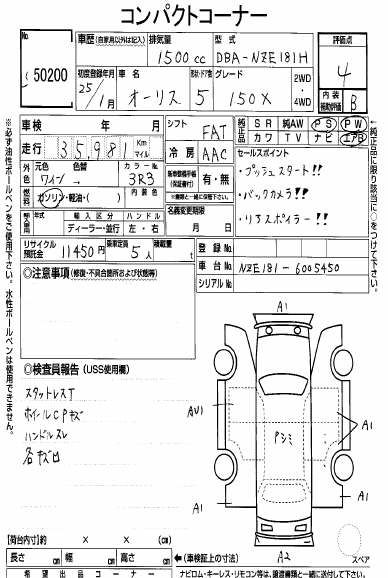 コンパクトコーナー
No.
50200
車歴 (自家用以外は記入) 排気量 型式
1500 cc DBA-NZE181H
初度登録年月 車名 形状・ドア数 グレード
25/1月 オーリス 5 150X
2WD
4WD
評価点
4
内装
補助評価
B
車検 年 月
シフト FAT
純正品 SR 純AW PS PW
カワ TV ナビ エアB
走行 35,981 Km マイル
冷房 AAC
セールスポイント
・プッシュスタート!!
・バックカメラ!!
・リアスポイラー!!
外色 元色 色替 カラーNo.
ワイン → 3R3
燃料 ガソリン・軽油・( ) 内装色
新車整備手帳(保証書付) 有・無
※車検と一緒に保管下さい。
名義変更期限
月 日
輸入車 年式 輸入区分 ハンドル
ディーラー・並行 左・右
リサイクル預託金 11450 円 乗車定員 5 人 積載量 t
登録No.
車台No. NZE181-6005450
シリアルNo.
◎注意事項 (修復・不具合箇所および状態等)
◎検査員報告 (USS使用欄)
スタットレスT
ホイールCPキズ
ハンドルスレ
各キズ凹
A1
AU1
Pシミ
A1
A1
A1
A2
スペア
【荷台内寸】 × × (cm)
長さ cm 幅 cm 高さ cm
←(車検証上の寸法)
希望出品コーナー
ナビロム・キーレス・リモコン等は、譲渡書類と一緒に送付して下さい。
※必ず油性ボールペンをご使用下さい。水性ボールペンは使用できません。
←純正品に限り該当に○をつけて下さい。